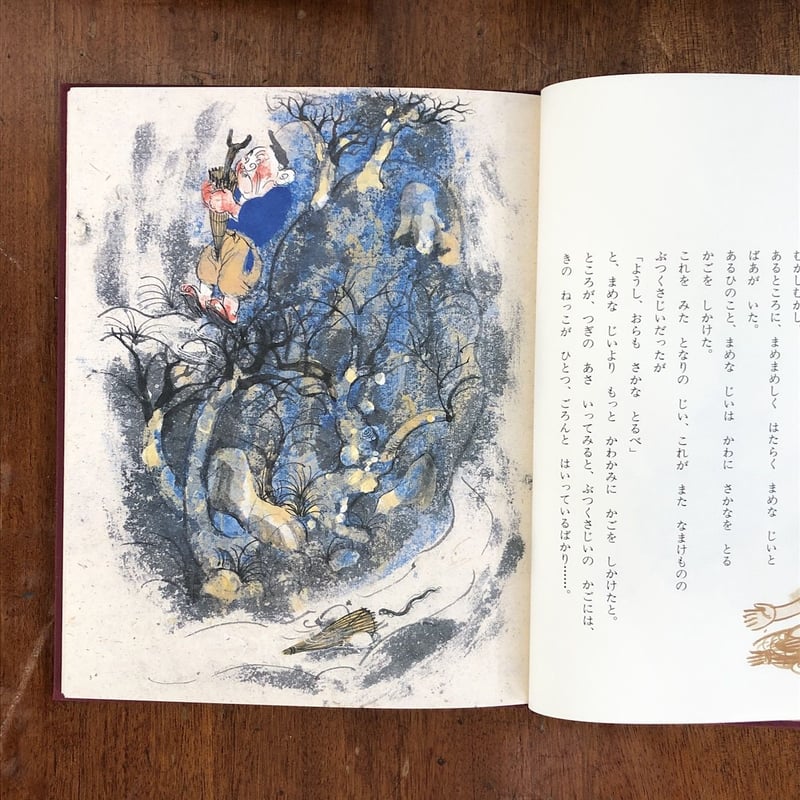 むかしむかし
あるところに、まめまめしく はたらく まめな じいと
ばあが いた。
あるひのこと、まめな じいは かわに さかなを とる
かごを しかけた。
これを みた となりの じい、これが また なまけものの
ぶつくさじいだったが
「ようし、おらも さかな とるべ」
と、まめな じいより もっと かわかみに かごを しかけたと。
ところが、つぎの あさ いってみると、ぶつくさじいの かごには、
きの ねっこが ひとつ、ごろんと はいっているばかり……。